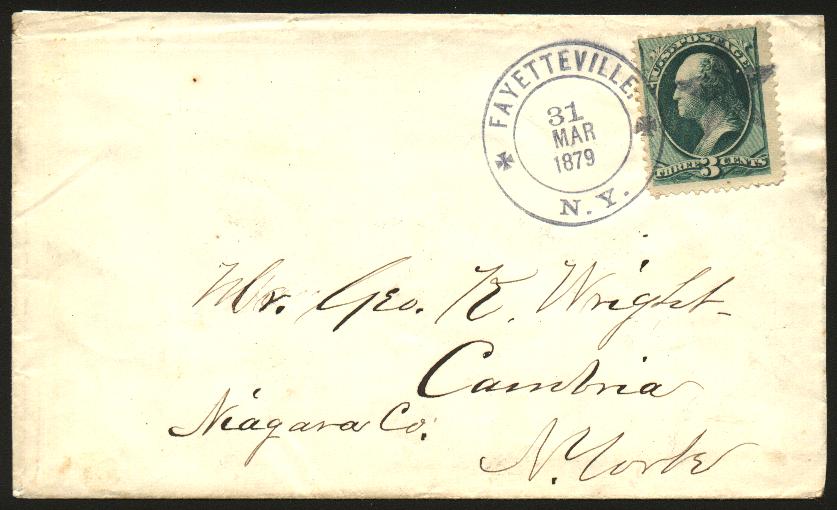 FAYETTEVILLE,
31
MAR
1879
N.Y.
U.S. POSTAGE
THREE 3 CENTS
Mr. Geo. K. Wright
Cambria
Niagara Co.
N. York